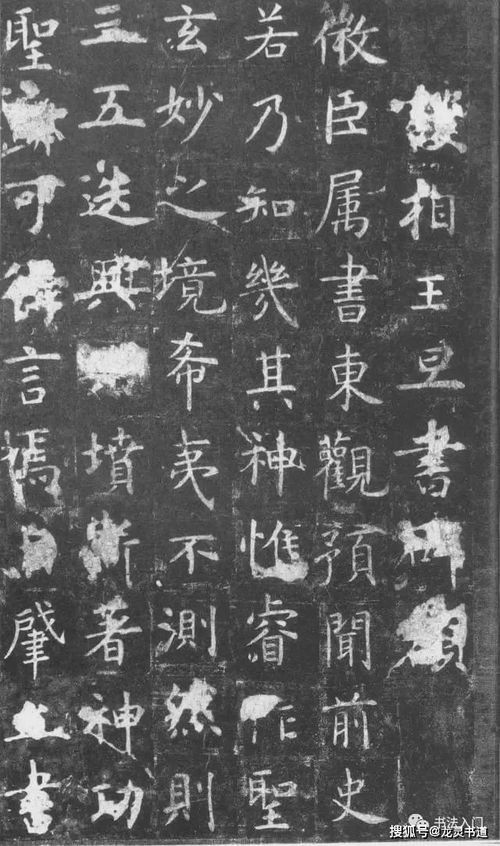 護相王旦書碑額
微臣属書東觀預聞前史
若乃知幾其神惟睿作聖
玄妙之境希夷不測然則
三五迭興墳斯著神功
聖迹可得言焉自肇立書
书法入门
搜狐号@龙灵书道